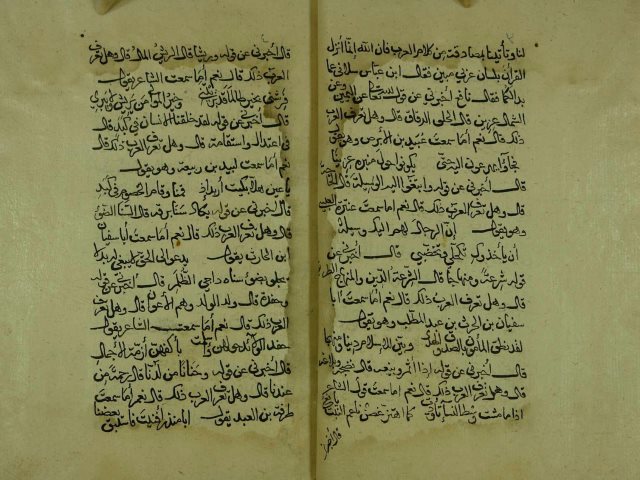 لنا وتأتينا بمصادقته من كلام العرب فان الله انما انزل
القرآن بلسان عربي مبين فقال ابن عباس سلاني عما
بدا لكما فقال نافع اخبرني عن قوله تعالى عن اليمين وعن
الشمال عزين قال الحلق الرفاق قال وهل تعرف العرب
ذلك قال نعم اما سمعت عبيد بن الابرص وهو يقول
فجاؤا يهرعون اليه حتى يكونوا حول منبره عزينا
قال اخبرني عن قوله وابتغوا اليه الوسيلة قال الحاجة
قال وهل تعرف العرب ذلك قال نعم اما سمعت عنترة العبسي
وهو يقول ان الرجال لهم اليك وسيلة
ان يأخذوك تكحلي وتخضبي قال اخبرني عن
قوله شرعة ومنهاجا قال الشرعة الدين والمنهاج الطريق
قال وهل تعرف العرب ذلك قال نعم اما سمعت ابا
سفيان بن الحارث بن عبد المطلب وهو يقول
لقد نطق المأمون بالصدق والهدى وبين للاسلام دينا ومنهجا
قال اخبرني عن قوله اذا اثمر وينعه قال نضجه وبلاغه
قال وهل تعرف العرب ذلك قال نعم اما سمعت قول الشاعر
اذا ما مشت وسط النساء تأودت كما اهتز غصن ناعم النبت يانع
قال اخبرني عن قوله وريشا قال الريش المال قال وهل تعرف
العرب ذلك قال نعم اما سمعت الشاعر يقول
فرشني بخير طالما قد بريتني وخير الموالي من يريش ولا يبري
قال اخبرني عن قوله لقد خلقنا الانسان في كبد قال
في اعتدال واستقامة قال وهل تعرف العرب ذلك قال
نعم اما سمعت لبيد بن ربيعة وهو يقول
يا عين هلا بكيت اربد اذ قمنا وقام الخصوم في كبد
قال اخبرني عن قوله يكاد سنا برقه قال السنا الضوء
قال وهل تعرف العرب ذلك قال نعم اما سمعت ابا سفيان
ابن الحارث يقول يدعو الى الحق لا يبغي به بدلا
يجلو بضوء سناه داجي الظلم قال اخبرني عن قوله
وحفدة قال ولد الولد وهم الأعوان قال وهل تعرف
العرب ذلك قال نعم اما سمعت الشاعر يقول
حفد الولائد حولهن واسلمت باكفهن أزمة الأجمال
قال اخبرني عن قوله وحنانا من لدنا قال رحمة من
عندنا قال وهل تعرف العرب ذلك قال نعم اما سمعت
طرفة بن العبد يقول ابا منذر افنيت فاستبق بعضنا